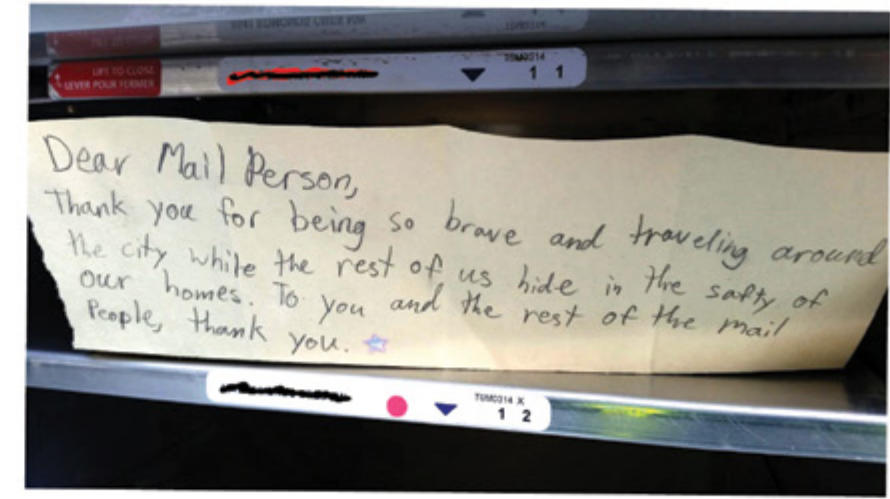 LIFT TO CLOSE
LEVER POUR FERMER
1 1
Dear Mail Person,
Thank you for being so brave and traveling around
the city while the rest of us hide in the safty of
our homes. To you and the rest of the mail
People, thank you.
1 2